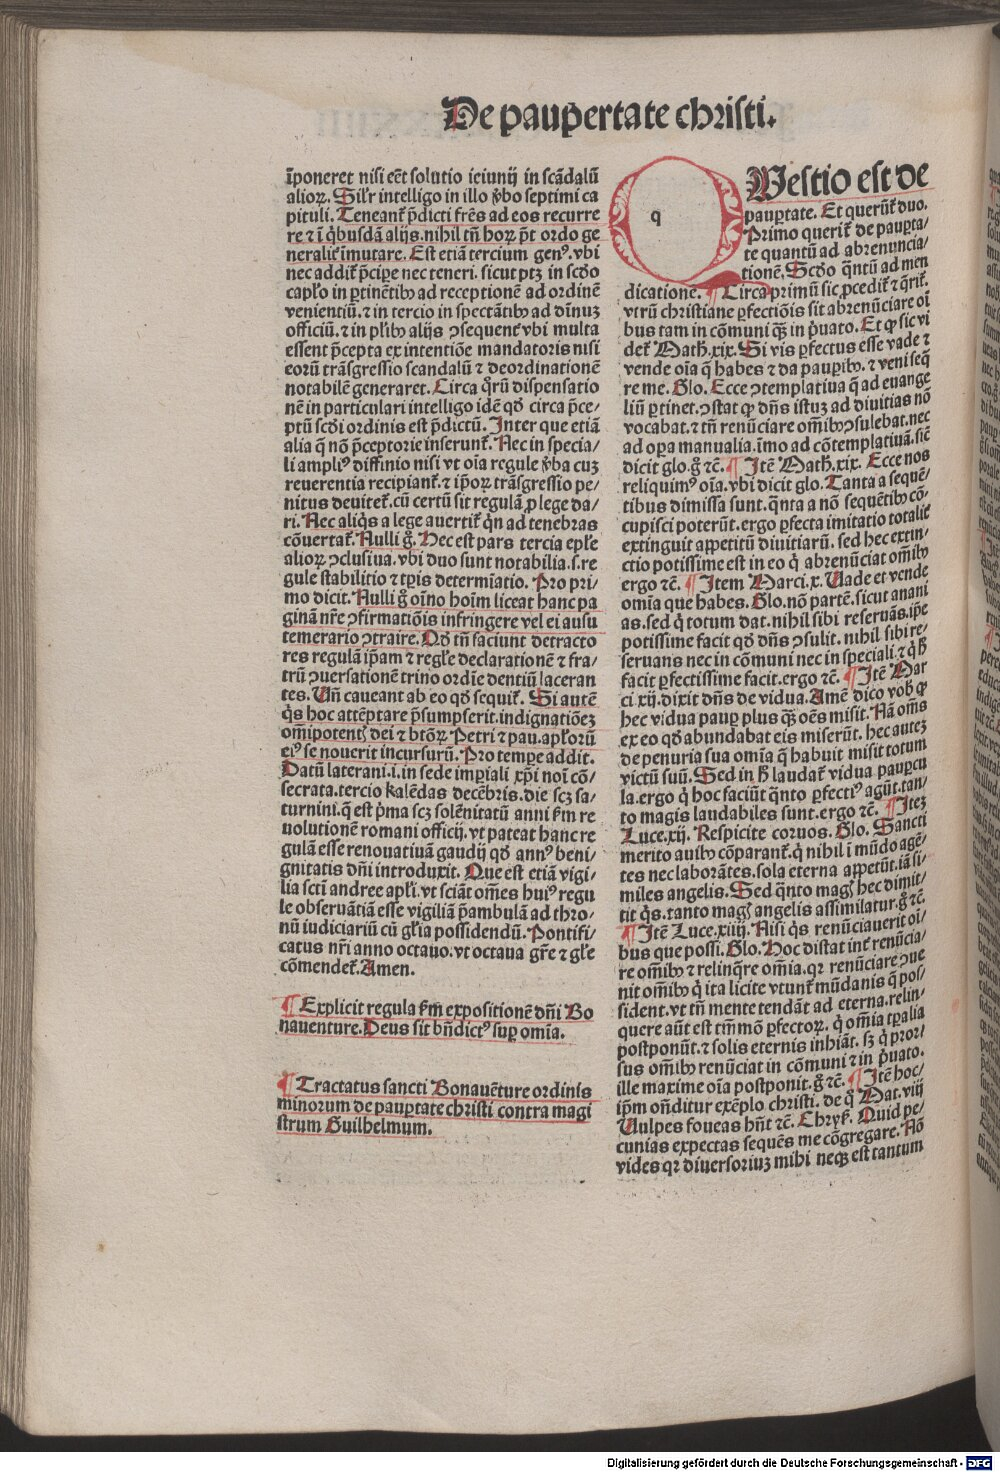 De pauꝑertate christi.
īponeret nisi eēt solutio ieiunij in scādalū
alioꝝ. Silʳr intelligo in illo v̄bo septimi ca
pituli. Teneant᷑ p̄dicti frēs ad eos recurre
re ⁊ ī q̇busdā alijs.nihil tn̄ hoꝝ pt̄ ordo ge
neralit᷑ īmutare. Est etiā tercium genꝰ.vbi
nec addit᷑ p̄cipe nec teneri. sicut ptꝫ in scd̄o
capło in ꝑtinētibꝰ ad receptionē ad ordinē
venientiū.⁊ in tercio in spectātibꝰ ad dīnuꝫ
officiū.⁊ in plʳibꝰ alijs ꝯsequent᷑ vbi multa
essent p̄cepta ex intentiōe mandatoris nisi
eorū trāsgressio scandalū ⁊ deordinationē
notabilē generaret. Circa q̄rū dispensatio
nē in particulari intelligo idē qd̓ circa p̄ce/
ptū scd̓i ordinis est p̄dictū. Inter que etiā
alia q̄ nō p̄ceptorie inserunt᷑. Nec in specia/
li ampliꝰ diffinio nisi vt oīa regule v̄ba cuꝫ
reuerentia recipiant᷑.⁊ ip̄oꝝ trāsgressio pe/
nitus deuitet᷑.cū certū sit regulā ꝓ lege da/
ri. Nec aliq̇s a lege auertit᷑ q̇n ad tenebras
cōuertat᷑. Nulli g̊. Hec est pars tercia epłe
alioꝝ ꝯclusiua.vbi duo sunt notabilia.s.re
gule stabilitio ⁊ tꝑis determīatio. Pro pri
mo dicit. Nulli g̊ oīno hoīm liceat hanc pa
ginā nr̄e ꝯfirmatiōis infringere vel ei ausu
temerario ꝯtraire. Qd̓ tn̄ faciunt detracto
res regulā ip̄am ⁊ regłe declarationē ⁊ fra/
trū ꝯuersationē trino ordīe dentiū laceran
tes. Vn̄ caueant ab eo qd̓ sequit᷑. Si autē
q̇s hoc attēptare p̄sumpserit.indignatiōeꝫ
om̄ipotentꝭ dei ⁊ btōꝝ Petri ⁊ pau.apłorū
eiꝰ se nouerit incursurū. Pro tempe addit.
Datū laterani.i.in sede imp̄iali xp̄i noī cō/
secrata.tercio kalēdas decēbris.die scꝫ sa/
turnini.q̄ est p̄ma scꝫ solēnitatū anni fm̄ re
uolutionē romani officij.vt pateat hanc re
gulā esse renouatiuā gaudij qd̓ annꝰ beni/
gnitatis dn̄i introduxit. Que est etiā vigi/
lia sctī andree apłi.vt sciāt om̄es huiꝰ regu
le obseruātiā esse vigiliā p̄ambulā ad thro/
nū iudiciariū cū głia possidendū. Pontifi/
catus nr̄i anno octauo.vt octaua gr̄e ⁊ głe
cōmendet᷑.Amen.
¶ Explicit regula fm̄ expositionē dn̄i Bo
nauenture.Deus sit bn̄dictꝰ suꝑ omīa.
¶ Tractatus sancti Bonauēture ordinis
minorum de pauꝑtate christi contra magi
strum Guilhelmum.
q
QVestio est de
pauꝑtate. Et querūt᷑ duo.
Primo querit᷑ de pauꝑta/
te quantū ad abrenuncia/
tionē. Scd̓o q̄ntū ad men
dicatione. ¶ Circa primū sic ꝓcedit᷑ ⁊ q̄rit᷑.
vtrū christiane ꝑfectiōis sit abrenūciare oī
bus tam in cōmuni qꝫ in p̄uato. Et ꝙ sic vi
det᷑ Math.xix. Si vis ꝑfectus esse vade ⁊
vende oīa q̄ habes ⁊ da pauꝑibꝰ.⁊ veni seq̄
re me. Glo. Ecce ꝯtemplatiua q̄ ad euange
liū ꝑtinet.ꝯstat ꝙ dn̄s istuꝫ ad diuitias nō
vocabat.⁊ tn̄ renūciare om̄ibꝰ ꝯsulebat.nec
ad oꝑa manualia.īmo ad cōtemplatiuā.sic̄
dicit glo.g̊ ⁊c̄. ¶ Itē Math.xix. Ecce nos
reliquimꝰ oīa.vbi dicit glo. Tanta a sequē/
tibus dimissa sunt.q̄nta a nō sequētibꝰ cō/
cupisci poterūt.ergo ꝑfecta imitatio totalit᷑
extinguit appetitū diuitiarū. sed hec extin/
ctio potissime est in eo q̇ abrenūciat om̄ibꝰ
ergo ⁊c̄. ¶ Item Marci.x. Uade et vende
omīa que habes. Glo.nō partē.sicut anani
as.sed q̇ totum dat.nihil sibi reseruās.ip̄e
potissime facit qd̓ dn̄s ꝯsulit. nihil sibi re/
seruans nec in cōmuni nec in speciali ⁊ q̇ h̄
facit ꝑfectissime facit.ergo ⁊c̄. ¶ Itē Mar
ci xij.dixit dn̄s de vidua. Amē dico vob̄ ꝙ
hec vidua pauꝑ plus qꝫ oēs misit. Nā om̄s
ex eo qd̓ abundabat eis miserūt. hec auteꝫ
de penuria sua omīa q̄ habuit misit totum
victū suū. Sed in h̄ laudat᷑ vidua pauꝑcu
la.ergo q̇ hoc faciūt q̄nto ꝑfectiꝰ agūt.tan/
to magis laudabiles sunt.ergo ⁊c̄. ¶ Iteꝫ
Luce.xij. Respicite coruos. Glo. Sancti
merito auibꝰ cōparant᷑.q̇ nihil ī mūdo agē/
tes nec laborātes.sola eterna appetūt.iā si/
miles angelis. Sed q̄nto magꝭ hec dimit/
tit q̇s.tanto magꝭ angelis assimilatur.g̊ ⁊c̄.
¶ Itē Luce.xiiij. Nisi q̇s renūciauerit oī/
bus que possi. Glo. Hoc distat int᷑ renūcia/
re om̄ibꝰ ⁊ relinq̄re omīa.qꝛ renūciare ꝯue
nit om̄ibꝰ q̇ ita licite vtunt᷑ mūdanis q̄ pos/
sident.vt tn̄ mente tendāt ad eterna.relin/
quere aūt est tm̄mō ꝑfectoꝝ. q̇ omīa tꝑalia
postponūt.⁊ solis eternis inhiāt. sꝫ q̇ pror/
sus om̄ibꝰ renūciat in cōmuni ⁊ in p̄uato.
ille maxime oīa postponit.g̊ ⁊c̄. ¶ Itē hoc/
ip̄m on̄ditur exēplo christi.de q̇ Mat.viij
Uulpes foueas hn̄t ⁊c̄. Chryẜ. Quid pe/
cunias expectas sequēs me cōgregare. Nō
vides qꝛ diuersoriuꝫ mihi neqꝫ est tantum
Digitalisierung gefördert durch die Deutsche Forschungsgemeinschaft - DFG